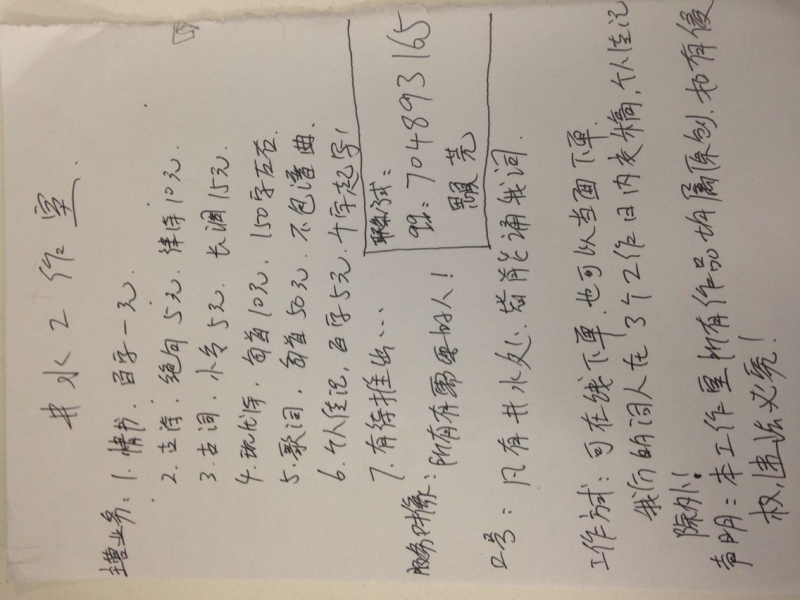 井水2作室.
主营业务: 1. 情书. 百字一元.
2. 古诗. 绝句5元. 律诗10元.
3. 古词. 小令5元. 长调15元.
4. 现代诗. 每首10元. 150字左右
5. 歌词. 每首50元. 不包谱曲.
6. 个人传记, 百字5元. 千字起写!
7. 有待推出...
联系方式:
QQ: 704893165
服务对象: 所有有需要的人!
口号: 凡有井水处. 皆能诵我词.
工作方式: 可在线下单. 也可以当面下单.
我们的词人在3个工作日内交稿, 个人传记
除外!
声明: 本工作室所有作品均属原创. 如有侵
权, 违法必究!